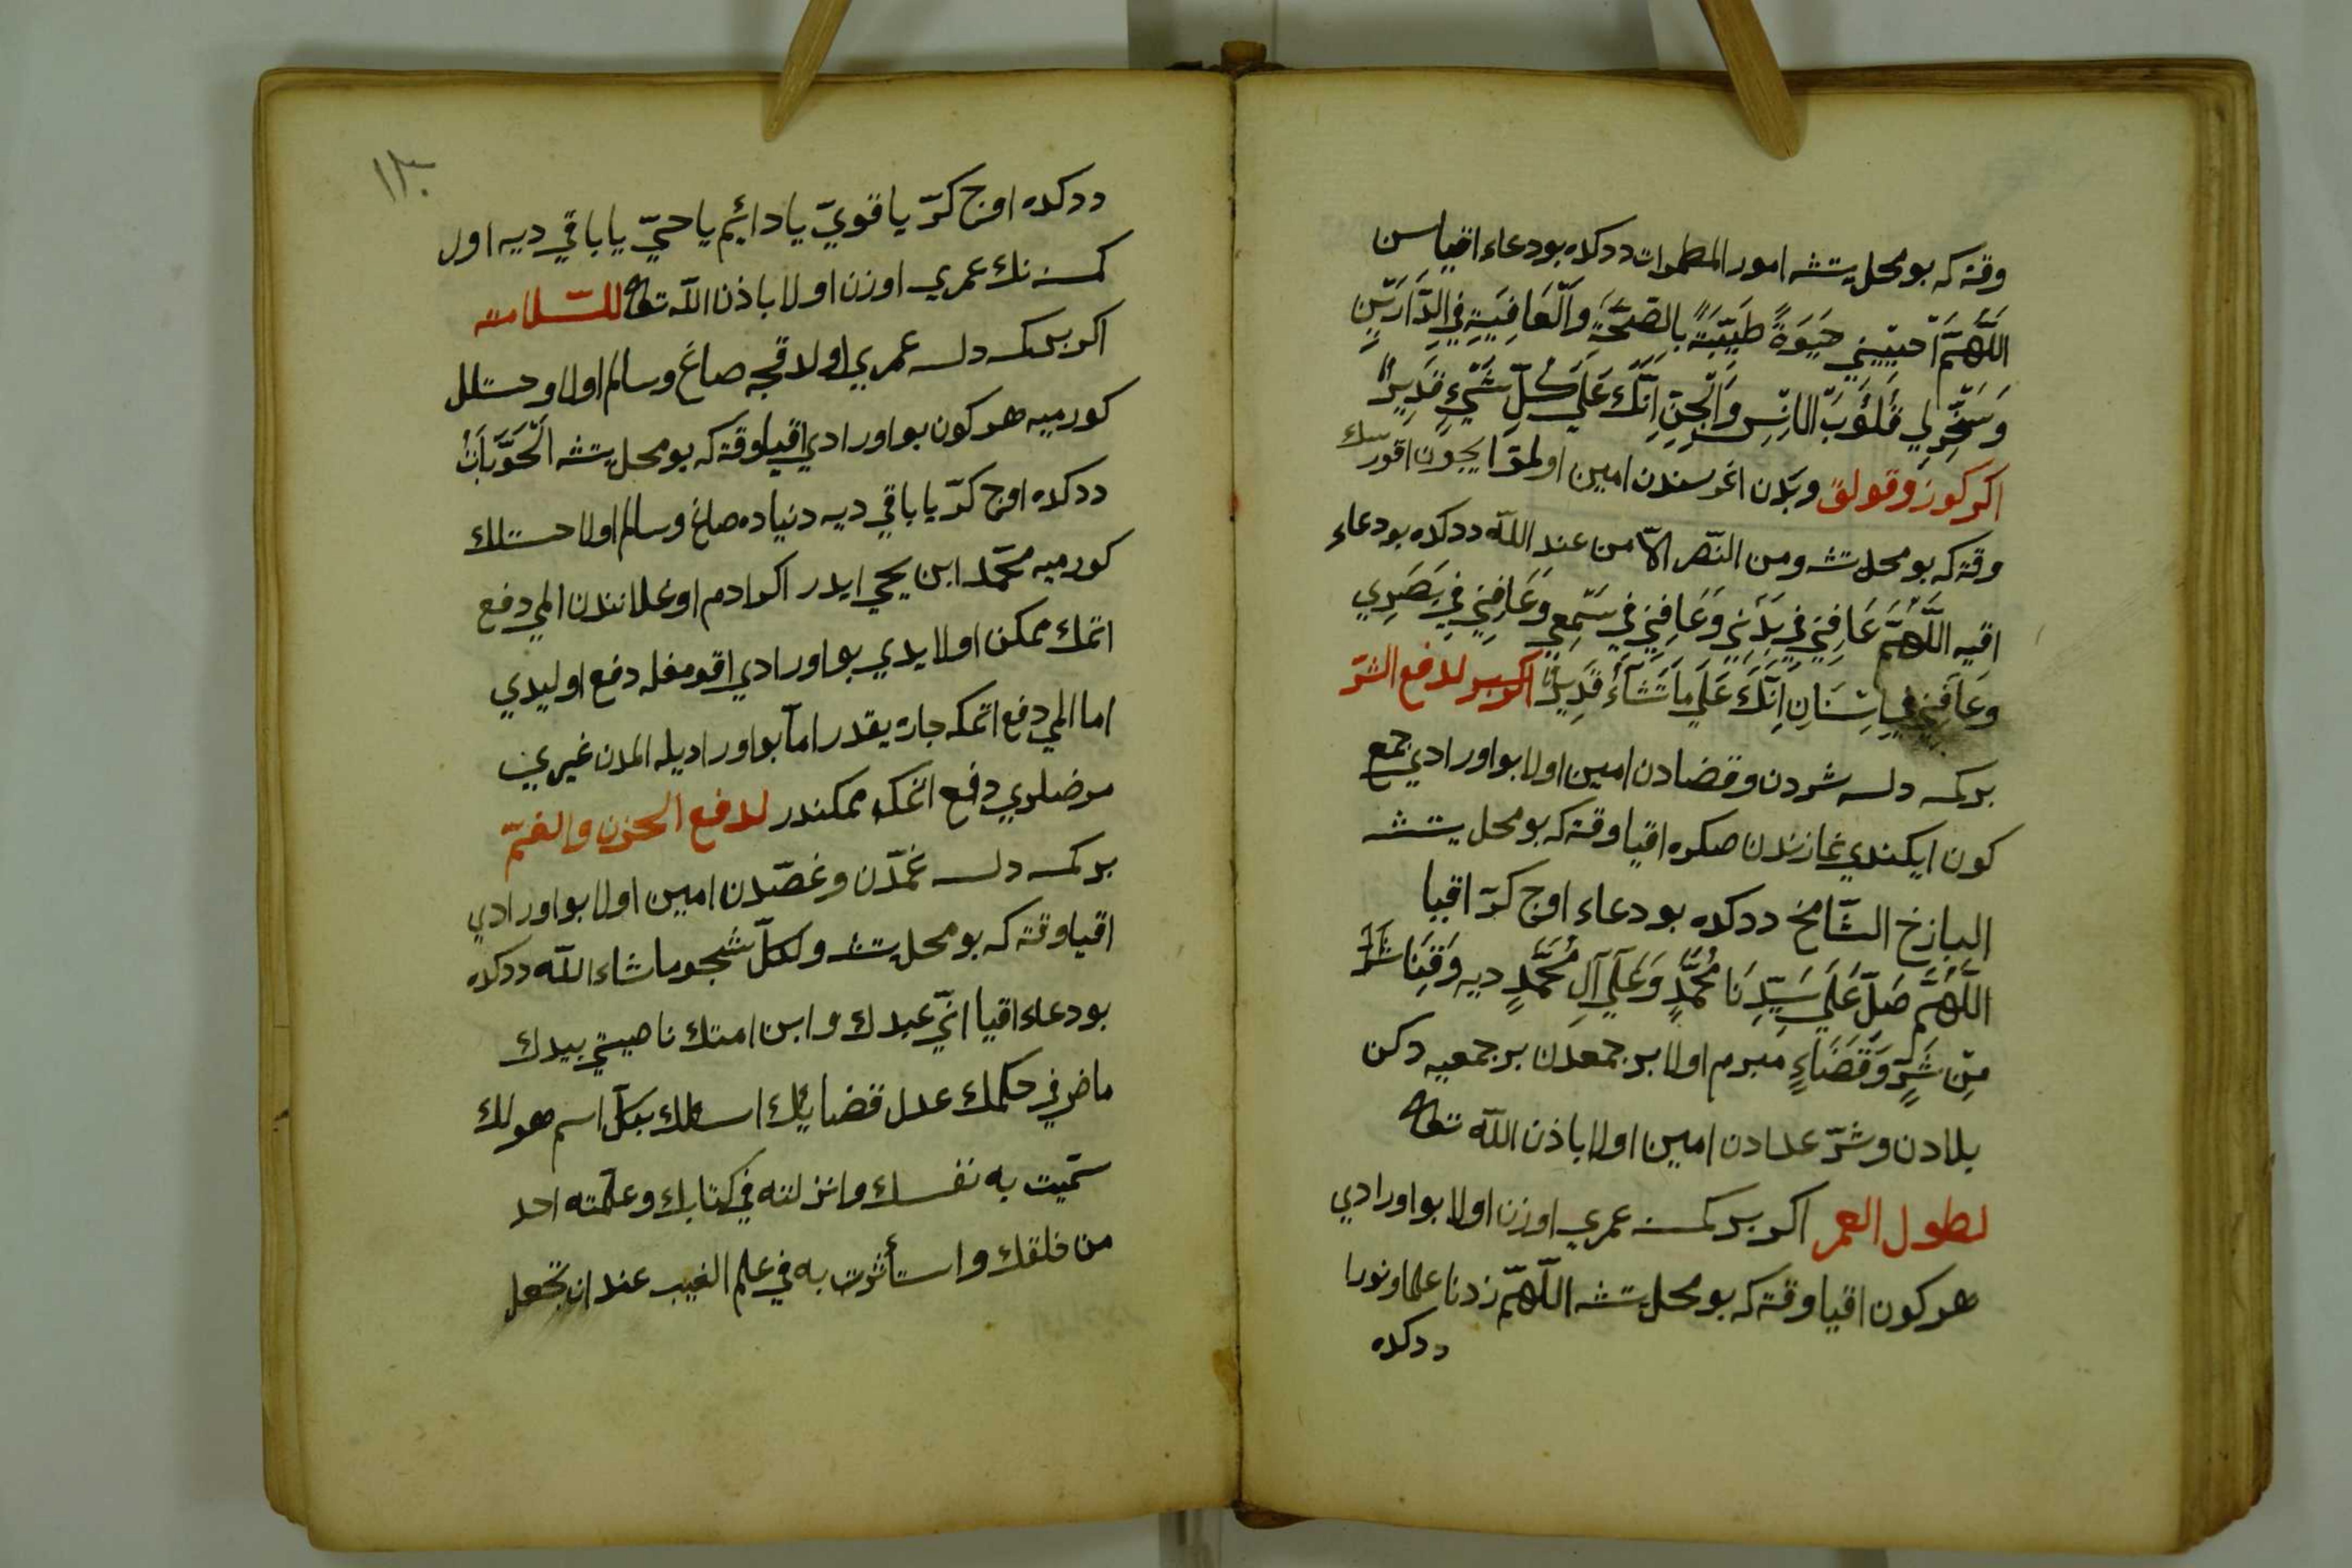 وقته كه بو محل يتشه امور المطهرات ددكده بو دعاء اقياسن
اَللّٰهُمَّ اَحْيِيْنِي حَيٰوةً طَيِّبَةً بِالصِّحَّةِ وَالْعَافِيَةِ فِي الدَّارَيْنِ
وَسَخِّرْ لِي قُلُوْبَ الْاِنْسِ وَالْجِنِّ اِنَّكَ عَلَي كُلِّ شَيْءٍ قَدِيرٌ
اكر كوز وقولق وبدن اغرسندن امين اولمق ايچون اقورسك
وقته كه بو محل يتشه ومن النّصر الاّ من عند اللّه ددكده بو دعاء
اقيه اَللّٰهُمَّ عَافِنِي فِي بَدَنِي وَعَافِنِي فِي سَمْعِي وَعَافِنِي فِي بَصَرِي
وَعَافِنِي فِي اِنَّكَ عَلَي مَا تَشَآءُ قَدِيرٌ اكر بر لدفع الشّرّ
بر كمسه دلسه شردن وقضادن امين اولا بو اورادي جمع
كون ايكندي نمازندن صكره اقيا وقته كه بو محل يتشه
الباذخ الشّامخ ددكده بو دعاء اوچ كرّ اقيا
اَللّٰهُمَّ صَلِّ عَلَي سَيِّدِنَا مُحَمَّدٍ وَعَلَي آلِ مُحَمَّدٍ ديه وَقِنَا شَرَّ
مِنْ شَرٍّ وَقَضَاءٍ مبرم اولا بر جمعدن بر جمعيه دكن
بلادن وشرّ عدادن امين اولا باذن اللّه تعالى
لطول العمر اكر بر كمسه عمري اوزن اولا بو اورادي
هر كون اقيا وقته كه بو محل يتشه اللّٰهمّ زدنا علما ونورا
ددكده
١٣٠
ددكده اوچ كرّ يا قويّ يا دائم يا حيّ يا باقي ديه اول
كمسه نك عمري اوزن اولا باذن اللّه تعالى للسّلامته
اكر بر كمسه دلسه عمري اولدقچه صاغ وسالم اولا وخستلك
كورميه هر كون بو اورادي اقيا وقته كه بو محل يتشه
ددكده اوچ كرّ يا باقي ديه دنياده صاغ وسالم اولا خستلك
كورميه محمّد ابن يحيي ايدر اكر ادم اوغلانندن المي دفع
اتمك ممكن اولايدي بو اورادي اقومغله دفع اوليدي
اما المي دفع اتمكه چاره يقدر امّا بو اوراديله المدن غيري
مرضلري دفع اتمكه ممكندر لدفع الحزن والغمّ
بر كمسه دلسه غمّدن وغصّدن امين اولا بو اورادي
اقيا وقته كه بو محل يتشه ولكلّ شجو ما شاء اللّه ددكده
بو دعاء اقيا انّي عبدك وابن امتك ناصيتي بيدك
ماض فيّ حكمك عدل قضايئك اسئلك بكلّ اسم هو لك
سمّيت به نفسك وانزلته في كتابك وعلّمته احد
من خلقك واستأثرت به في علم الغيب عند ان تجعل